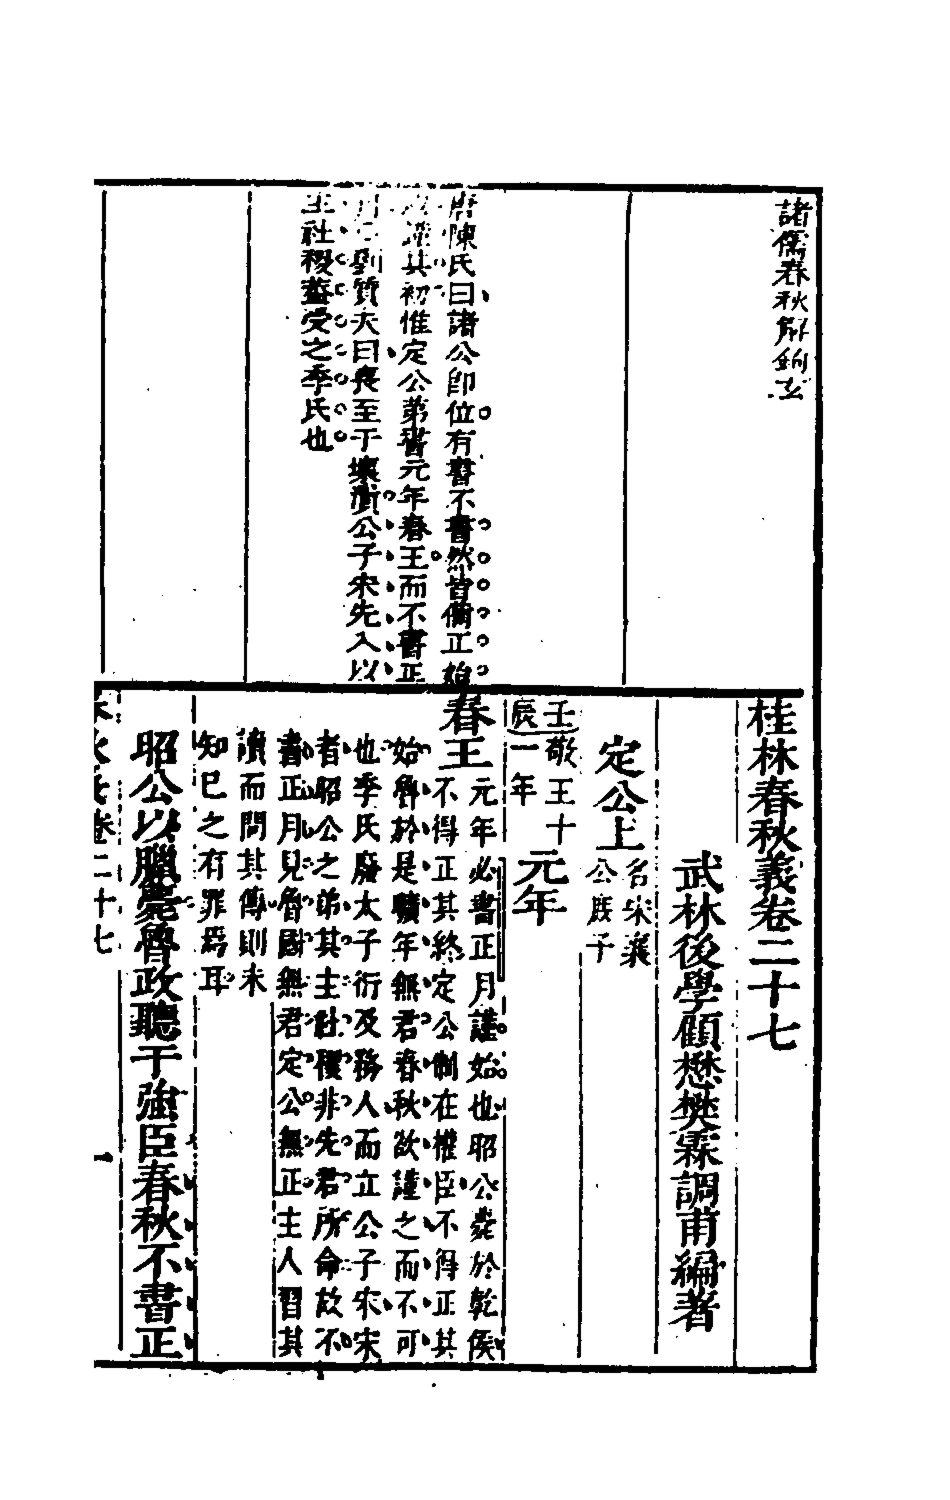 諸儒春秋解鉤玄
陳氏曰諸公卽位有書不書然皆備正始
謹其初惟定公第書元年春王而不書正
月 劉質夫曰喪至于壞隤公子宋先入以
主社稷蓋受之季氏也
桂林春秋義卷二十七
武林後學顧懋樊霖調甫編著
定公上
名宋襄
公庶子
壬敬王十
辰一年
元年
春王
元年必書正月謹始也昭公薨於乾侯
不得正其終定公制在權臣不得正其
始魯於是曠年無君春秋欲謹之而不可
也季氏廢太子衍及務人而立公子宋宋
者昭公之弟其主社稷非先君所命故不
書正月見魯國無君定公無正主人習其
讀而問其傳則未
知己之有罪焉耳
昭公以臘薨魯政聽于強臣春秋不書正
春秋義卷二十七
一